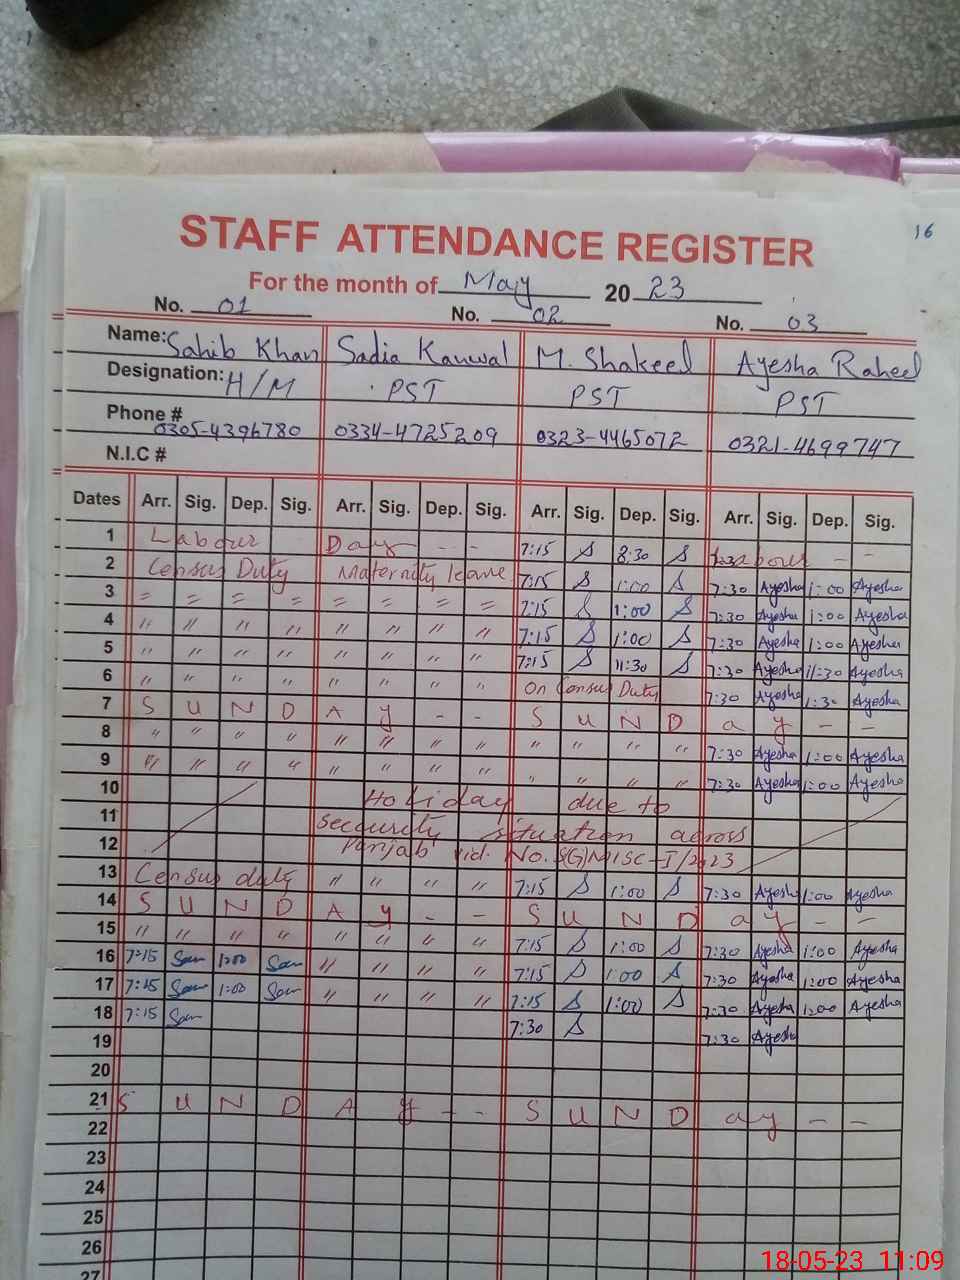 16
STAFF ATTENDANCE REGISTER
For the month of May 2023
No. 01 No. 02 No. 03
Name: Sahib Khan Sadia Kanwal M. Shakeel Ayesha Raheel
Designation: H/M PST PST PST
Phone # 0305-4396780 0334-4725209 0323-4465072 0321-4699747
N.I.C #
Dates Arr. Sig. Dep. Sig. Arr. Sig. Dep. Sig. Arr. Sig. Dep. Sig. Arr. Sig. Dep. Sig.
1 Labour Day - - 7:15 S 8:30 S Labour - -
2 Census Duty Maternity leave 7:15 S 1:00 S 7:30 Ayesha 1:00 Ayesha
3 = = = = = = = = 7:15 S 1:00 S 7:30 Ayesha 1:00 Ayesha
4 " " " " " " " " 7:15 S 1:00 S 7:30 Ayesha 1:00 Ayesha
5 " " " " " " " " 7:15 S 11:30 S 7:30 Ayesha 11:30 Ayesha
6 " " " " " " " " On Census Duty 7:30 Ayesha 1:30 Ayesha
7 S U N D A y - - S U N D a y - -
8 " " " " " " " " " " " " 7:30 Ayesha 1:00 Ayesha
9 " " " " " " " " " " " " 7:30 Ayesha 1:00 Ayesha
10 Holiday due to
11 security situation across
12 Punjab vid. No. S(G)MISC-I/2023
13 Census duty " " " " 7:15 S 1:00 S 7:30 Ayesha 1:00 Ayesha
14 S U N D A y - - S U N D a y - -
15 " " " " " " " " 7:15 S 1:00 S 7:30 Ayesha 1:00 Ayesha
16 7:15 Sam 1:00 Sam " " " " 7:15 S 1:00 S 7:30 Ayesha 1:00 Ayesha
17 7:15 Sam 1:00 Sam " " " " 7:15 S 1:00 S 7:30 Ayesha 1:00 Ayesha
18 7:15 Sam 7:30 S 7:30 Ayesha
19
20
21 S U N D A y - - S U N D a y - -
22
23
24
25
26
27
18-05-23 11:09